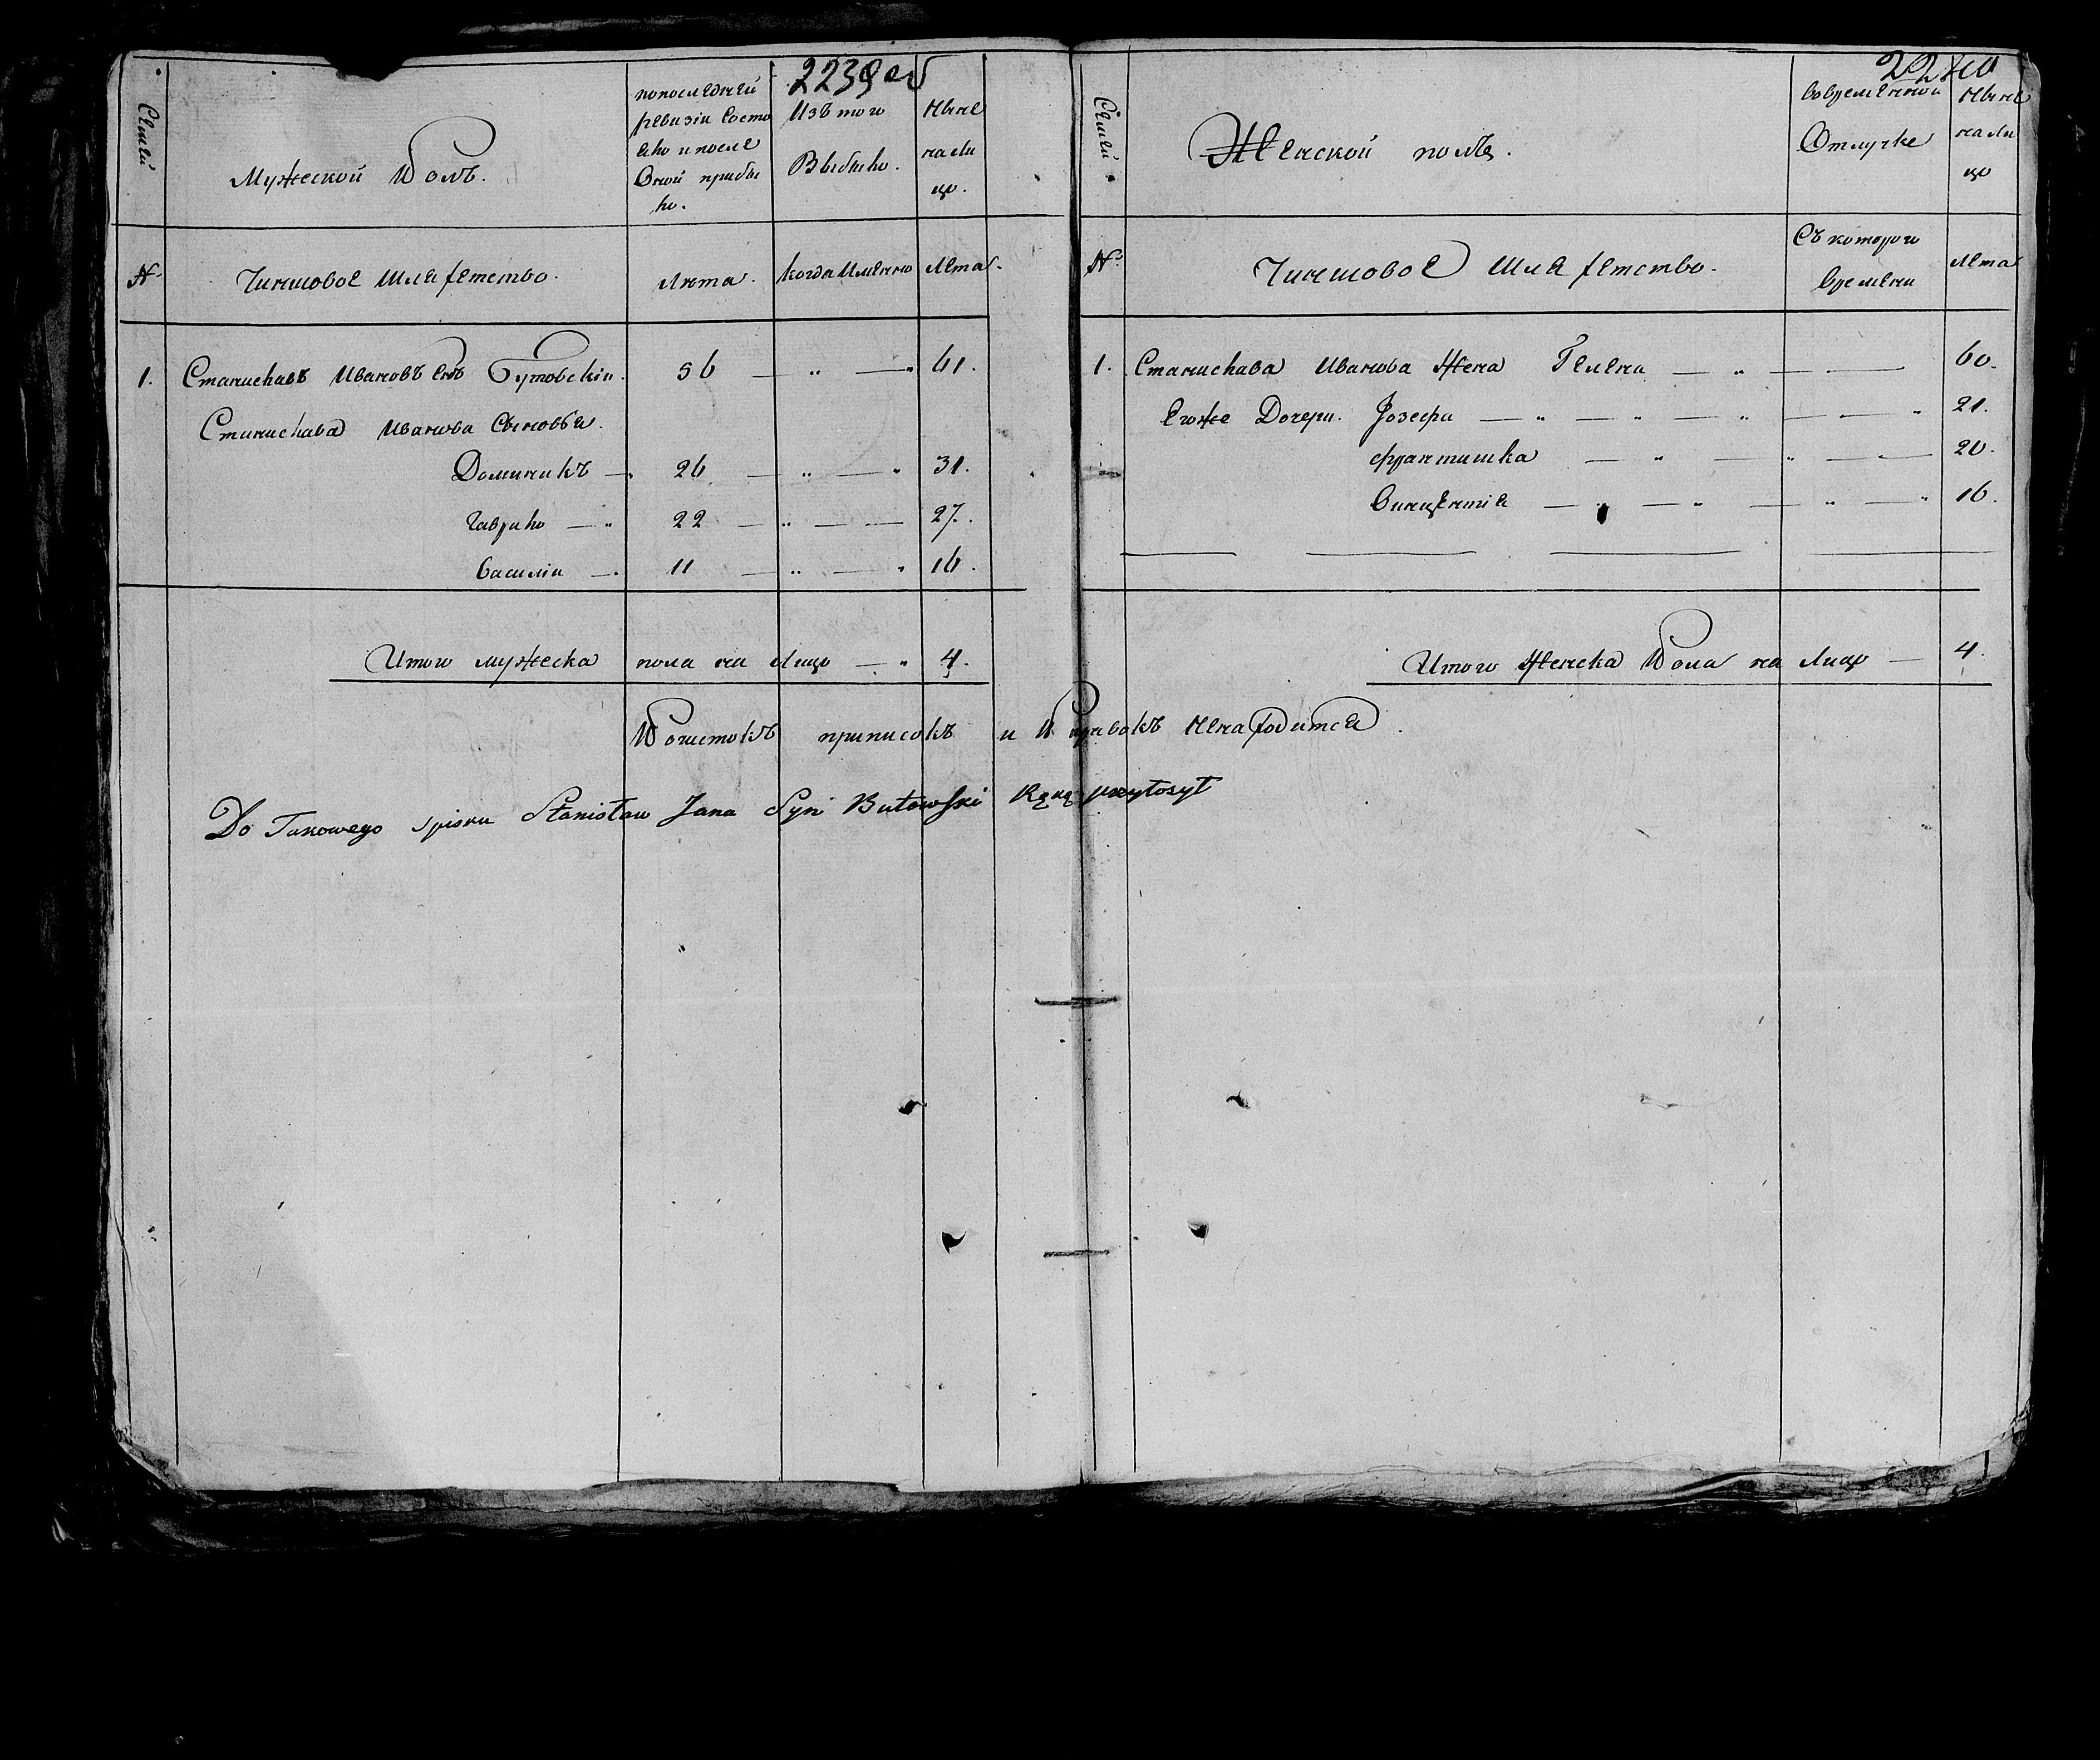 2239 об
Семьи
Мужеской Полъ.
попоследней
ревизіи состо
яло и после
Оной прибы
ло.
Изъ того
Выбыло.
Ныне
на ли
цо.
№
Чиншовое Шляхетство.
Лѣта.
когда Именно
Лета.
1. Станиславъ Ивановъ Бутовскіи. 56 — „ — 61.
Станислава Иванова Сыновья.
Доминикъ — 26 — „ — „ 31.
Гаврило — „ 22 — „ — — 27.
Василіи — 11 — „ — „ 16.
Итого мужеска пола на Лицо — „ 4.
2240
Семьи.
Женской полъ.
вовременной
Отлучке
Ныне
на ли
цо
№
Чиншовое Шляхетство.
Съ которого
Времени
Лета
1. Станислава Иванова Жена Гелена — „ — — 60.
Егоже Дочери. Іозефа — „ — „ — „ — — „ 21.
Франтишка — „ — „ — — 20.
Винцентія — „ — „ — „ — „ 16.
Итого Женска Пола на Лицо — 4.
Почистокъ приписокъ и Поправокъ Ненаходитсѧ.
Do Takowego spisku Stanisław Jana Syn Butowski Ręką przyłożył